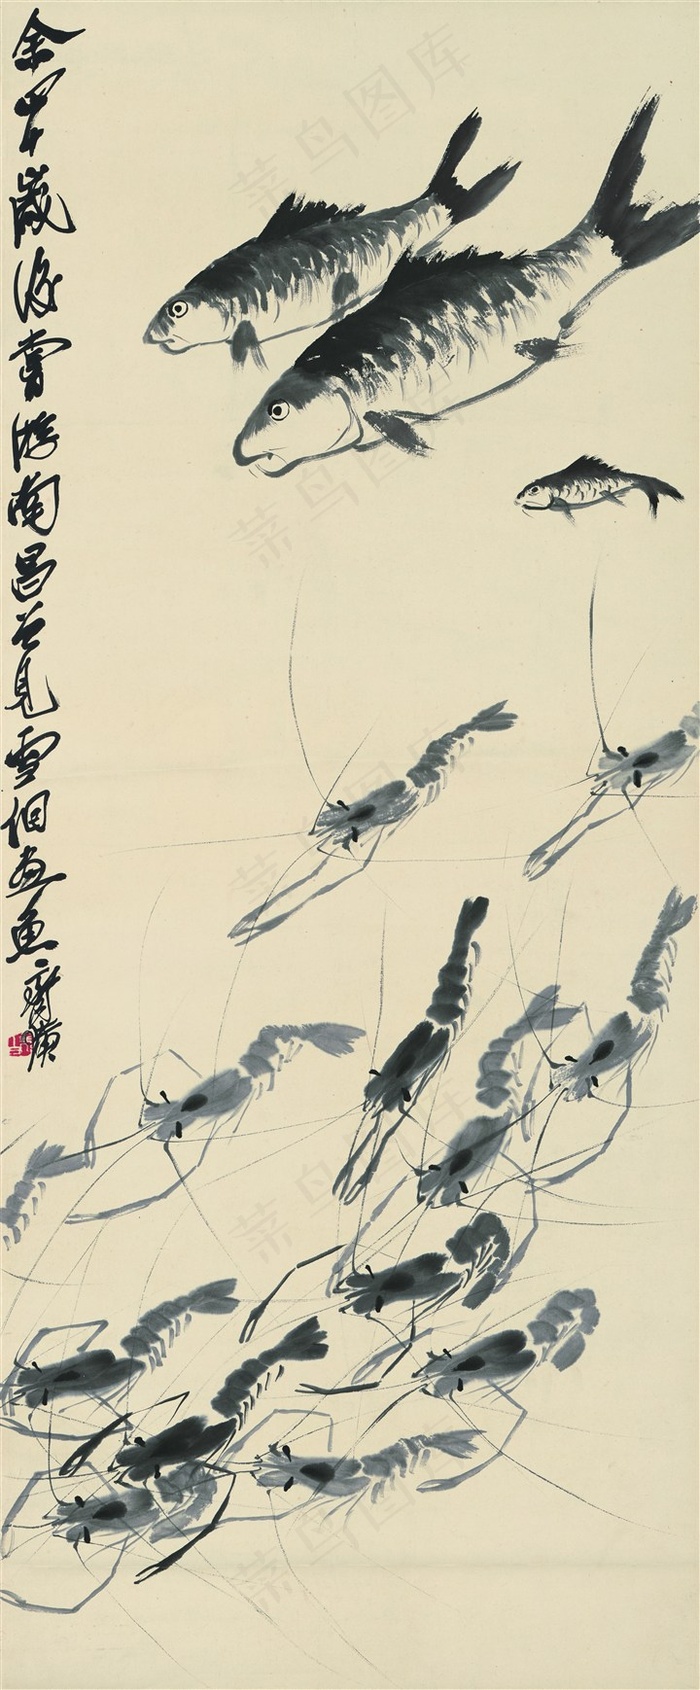 余四十歲後嘗游南昌曾見雪個畫魚 齊璜
菜鸟图库
菜鸟图库
菜鸟图库
菜鸟图库
菜鸟图库